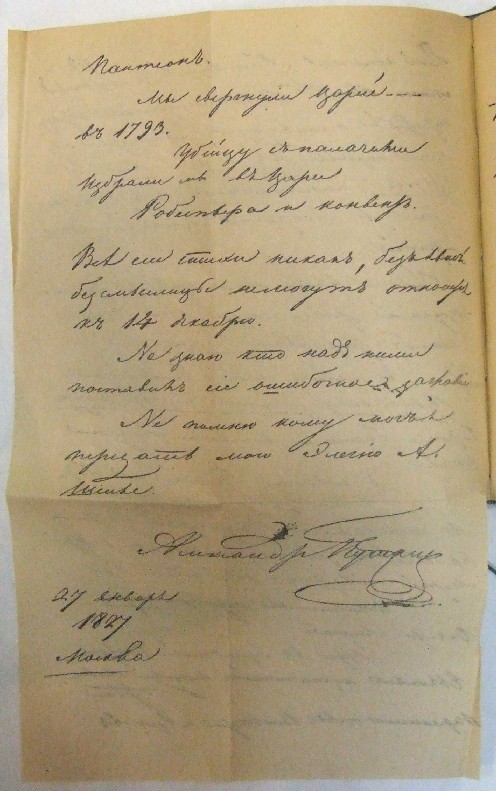 Пантеонъ.
Мы свергнули царей
въ 1793.
Убійцу съ палачами
Избрали мы въ цари
Робеспьера и конвентъ.
Всѣ сіи стихи никакъ, безъ явной
безсмыслицы не могутъ относ
къ 14 декабрю.
Не знаю кто надъ ними
поставилъ сіе ошибочное заглавіе
Не помню кому могъ я
передать мою Элегію А.
Шенье.
Александръ Пушкин
27 январь
1827
Москва